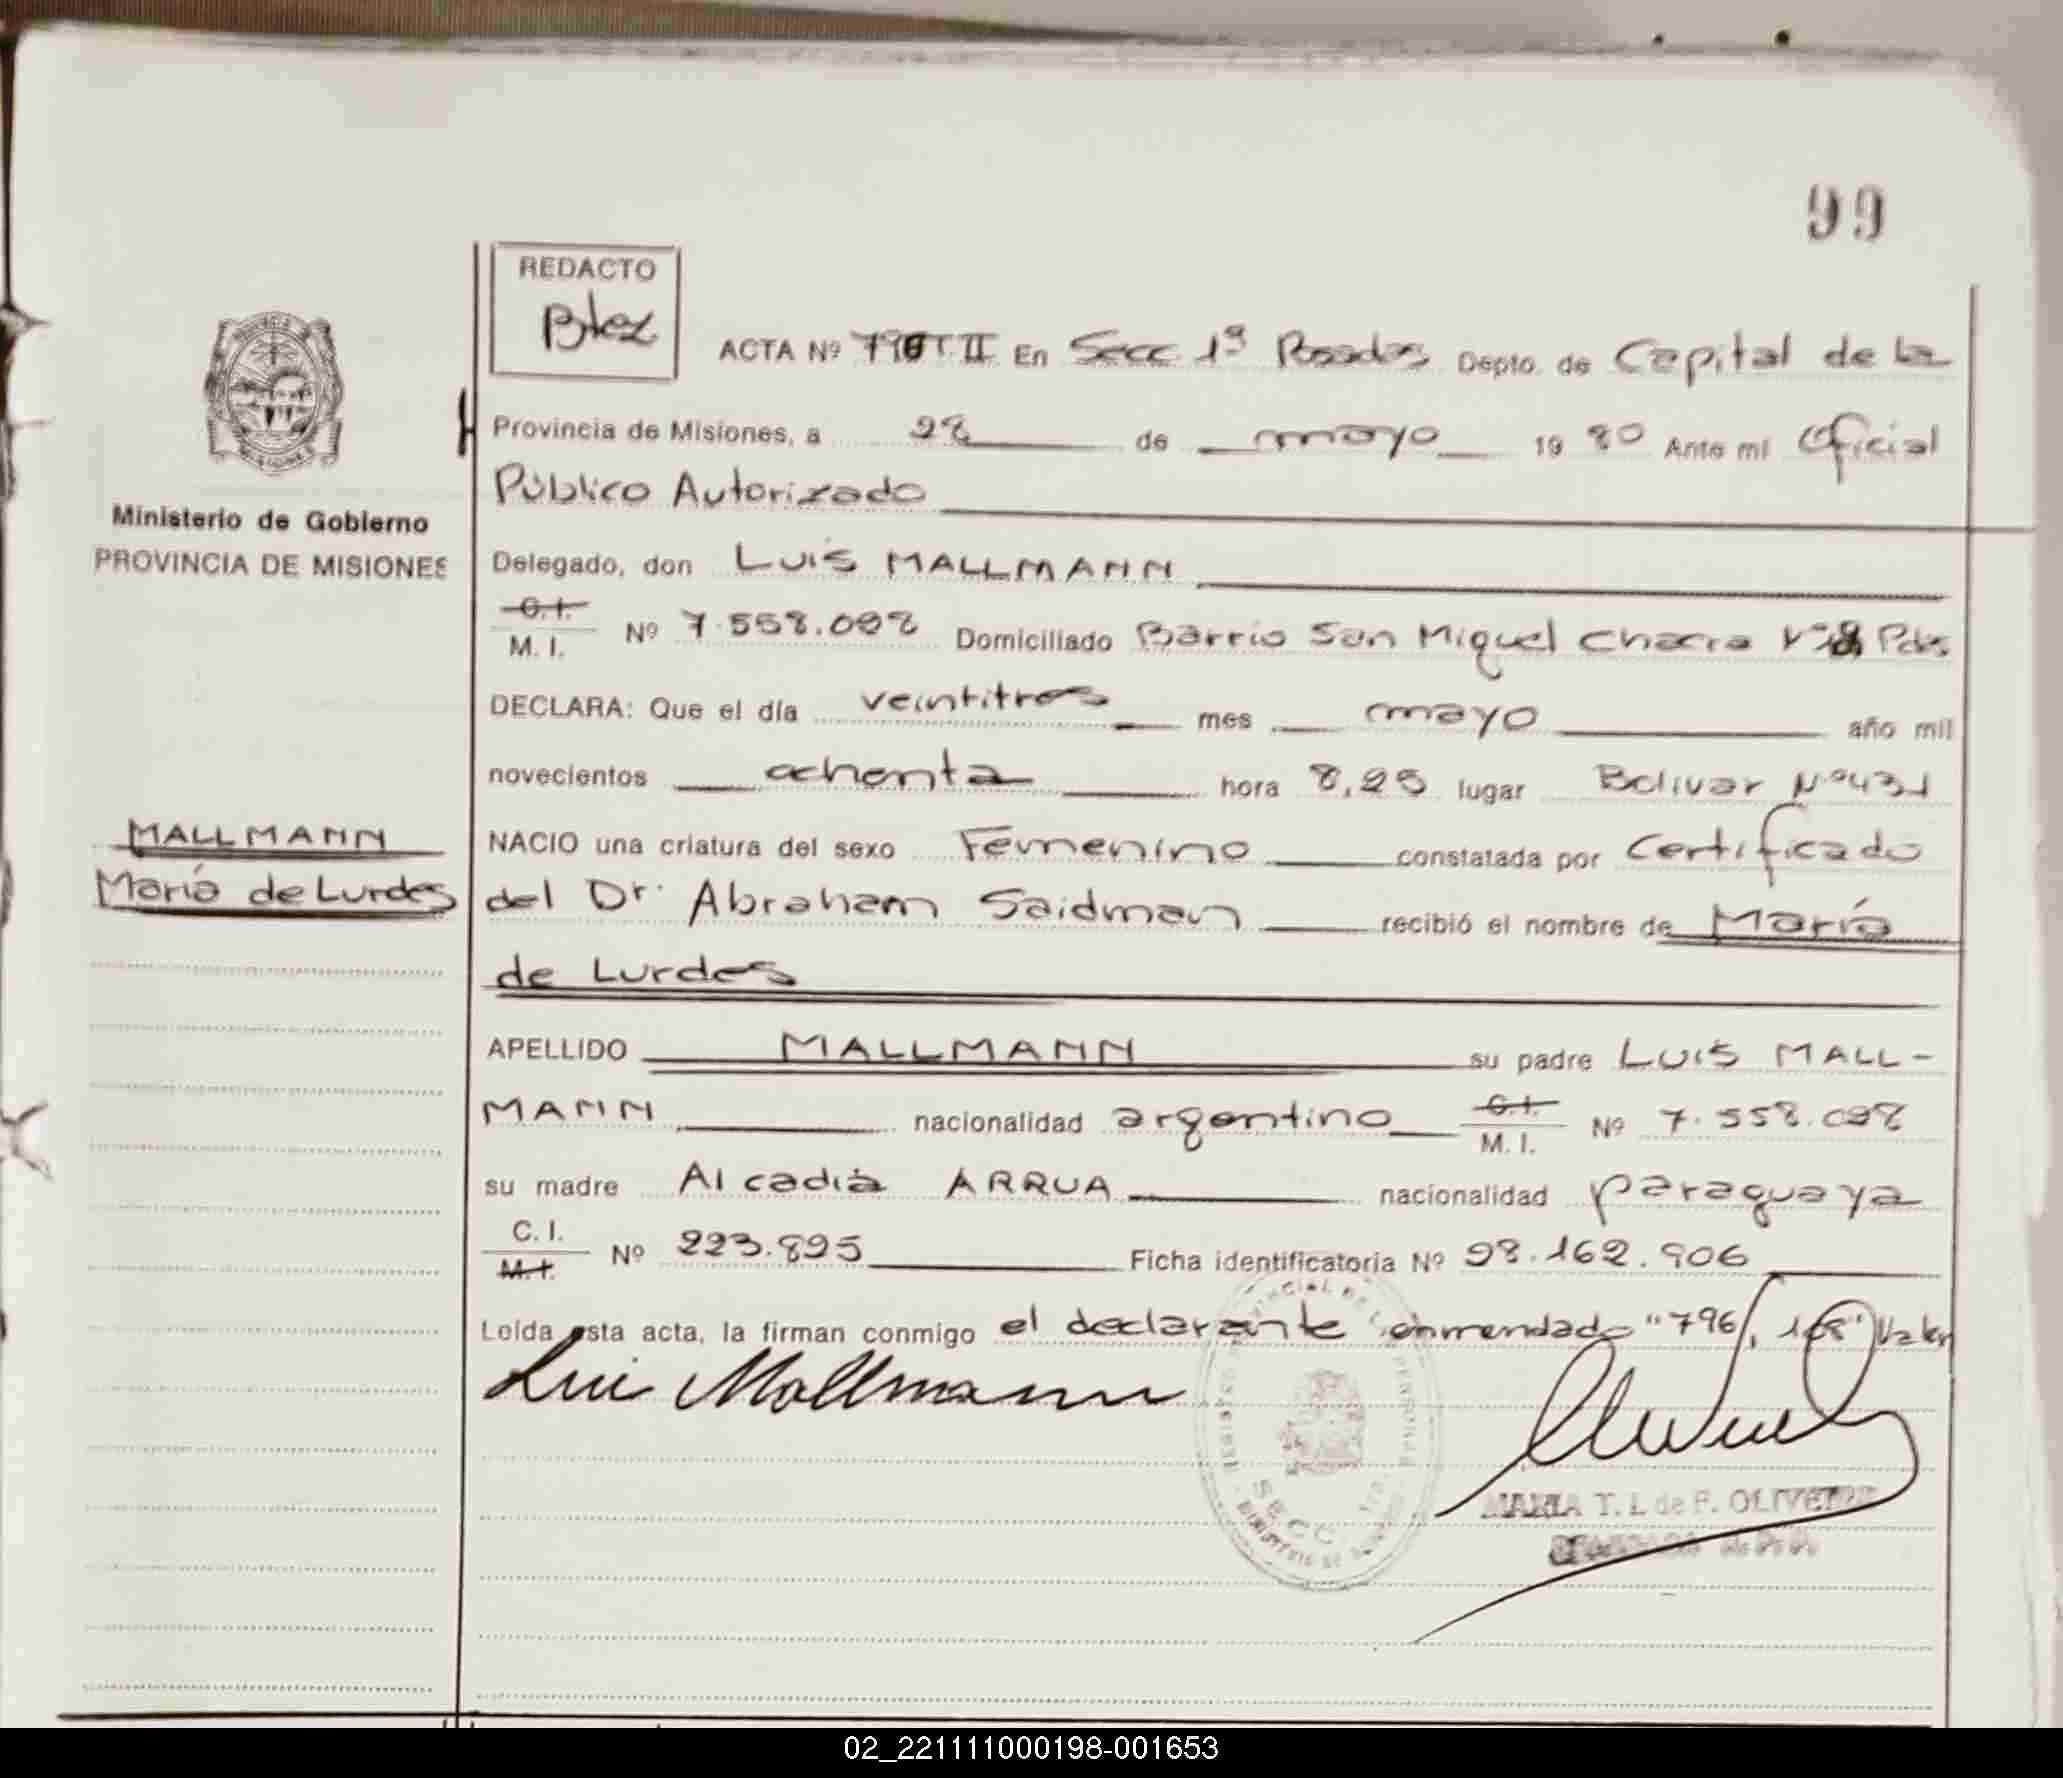 99
REDACTO
Btez
ACTA Nº 796 T II En Secc 1ª Posadas Depto. de Capital de la
Provincia de Misiones, a 28 de mayo 19 80 Ante mi Oficial
Público Autorizado
Ministerio de Gobierno
PROVINCIA DE MISIONES
Delegado, don Luis MALLMANN
C.I. M. I. Nº 7.558.098 Domiciliado Barrio San Miguel Chacra Nº 18 Pdas
DECLARA: Que el día veintitres mes mayo año mil
novecientos ochenta hora 8,25 lugar Bolivar Nº 431
MALLMANN
María de Lurdes
NACIO una criatura del sexo Femenino constatada por Certificado
del Dr. Abraham Saidman recibió el nombre de María
de Lurdes
APELLIDO MALLMANN su padre LUIS MALL-
MANN nacionalidad argentino C.I. M. I. Nº 7.558.098
su madre Alcadia ARRUA nacionalidad paraguaya
C. I. M.I. Nº 223.895 Ficha identificatoria Nº 98.162.906
Leída esta acta, la firman conmigo el declarante enmendado "796, 168" Valen
Luis Mallmann
SECC 1ra.
MARIA T. L de F. OLIVEIRA
02_221111000198-001653